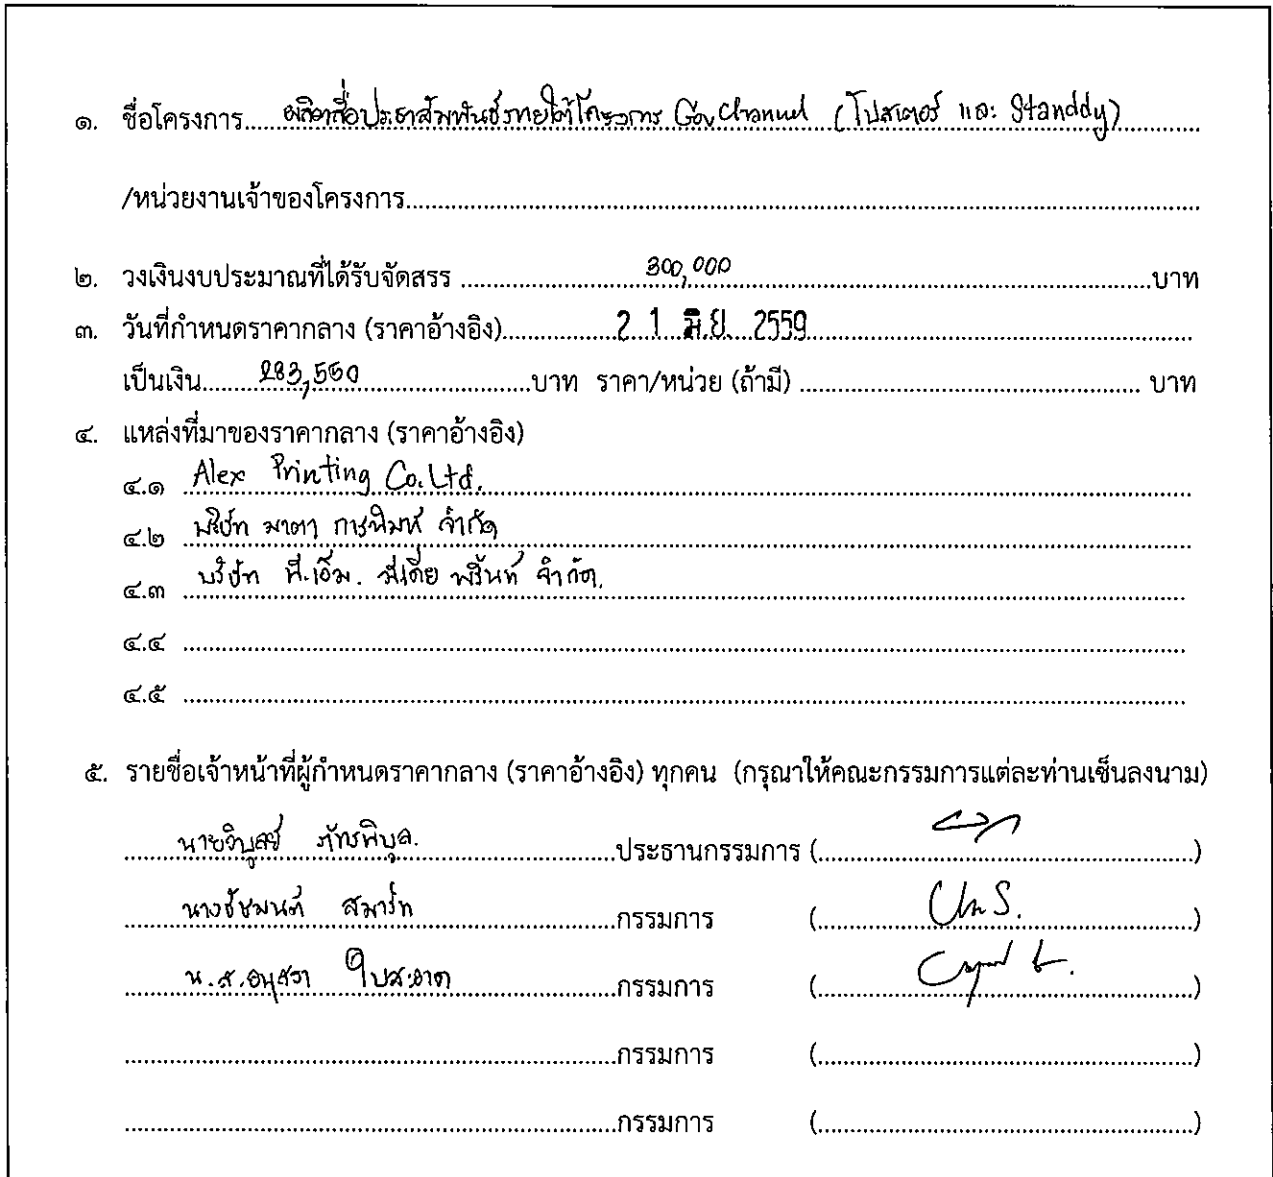 ๑. ชื่อโครงการ.....ผลิตสื่อประชาสัมพันธ์ภายใต้โครงการ GovChannel (โปสเตอร์ และ Standdy)
/หน่วยงานเจ้าของโครงการ
๒. วงเงินงบประมาณที่ได้รับจัดสรร 300,000 บาท
๓. วันที่กำหนดราคากลาง (ราคาอ้างอิง) 21 มิ.ย. 2559
เป็นเงิน 283,550 บาท ราคา/หน่วย (ถ้ามี) บาท
๔. แหล่งที่มาของราคากลาง (ราคาอ้างอิง)
๔.๑ Alex Printing Co.Ltd.
๔.๒ บริษัท มาตา การพิมพ์ จำกัด
๔.๓ บริษัท พี.เอ็ม. มีเดีย พริ้นท์ จำกัด.
๔.๔
๔.๕
๕. รายชื่อเจ้าหน้าที่ผู้กำหนดราคากลาง (ราคาอ้างอิง) ทุกคน (กรุณาให้คณะกรรมการแต่ละท่านเซ็นลงนาม)
นายวิบูลย์ ภัทรพิบูล. ประธานกรรมการ ( )
นางธัชมนต์ สมาร์ท กรรมการ ( )
น.ส.อนุสรา ใบสะอาด กรรมการ ( )
กรรมการ ( )
กรรมการ ( )